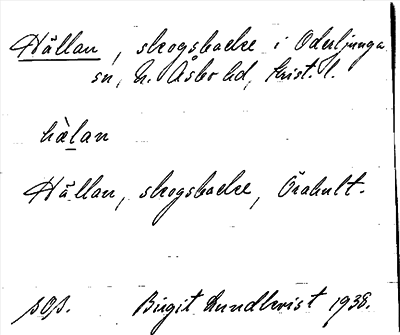 Hållan, skogsbacke i Oderljunga
sn, N. Åsbo hd, Krist. l.
hàlan
Hållan, skogsbacke, Örahult.
sgs. Birgit Lundkvist 1938.